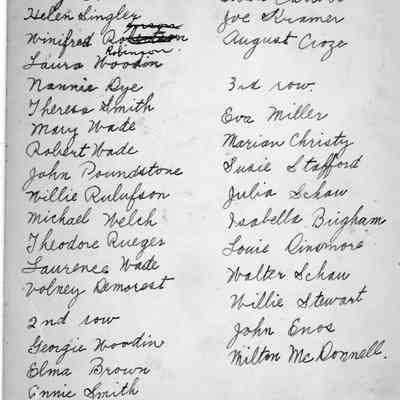 Helen Singley
Winifred
Robinson.
Laura Woodin
Nannie Dye
Theresa Smith
Mary Wade
Robert Wade
John Poundstone
Willie Rulufson
Michael Welch
Theodore Rueger
Laurence Wade
Volney Demorest
2nd row
Georgie Woodin
Elma Brown
Annie Smith
Joe Kramer
August Croze
3rd row.
Eva Miller
Marian Christy
Susie Stafford
Julia Schaw
Isabella Brigham
Louie Dinsmore
Walter Schaw
Willie Stewart
John Enos
Milton McDonnell.